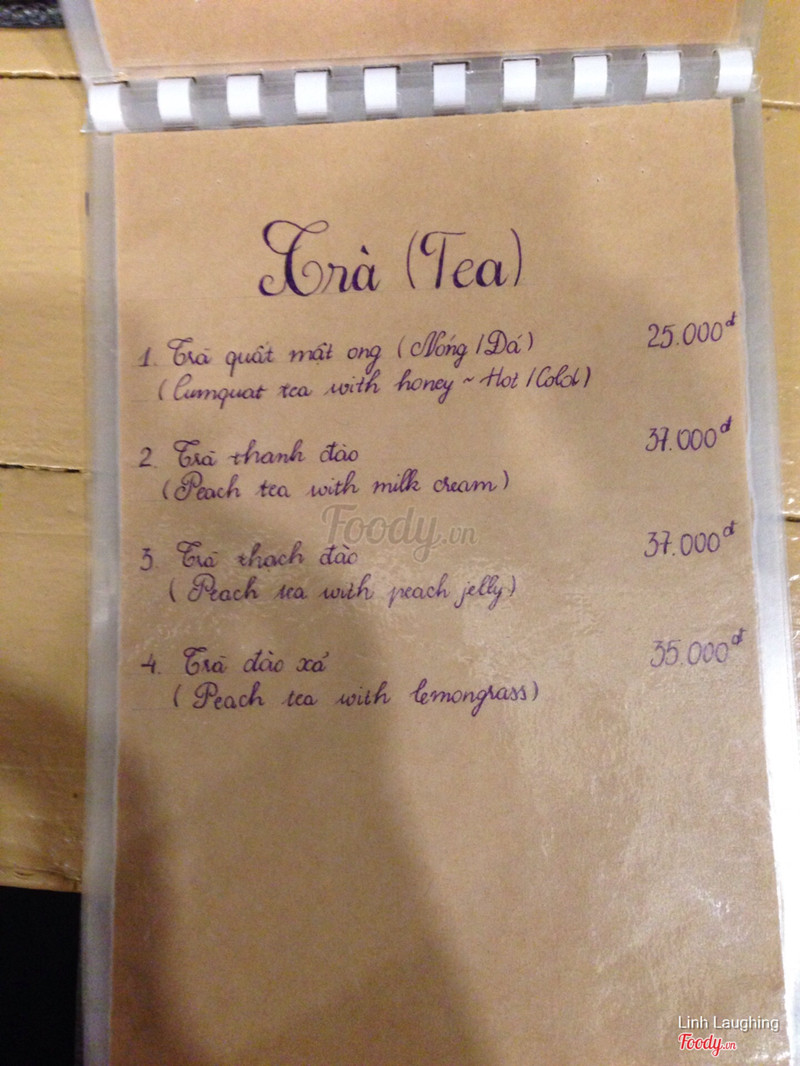 Trà (Tea)
1. Trà quất mật ong (Nóng/Đá) 25.000đ
(Cumquat tea with honey ~ Hot/Cold)
2. Trà thanh đào 37.000đ
(Peach tea with milk cream)
Foody.vn
3. Trà thạch đào 37.000đ
(Peach tea with peach jelly)
4. Trà đào xả 35.000đ
(Peach tea with lemongrass)
Linh Laughing
Foody.vn